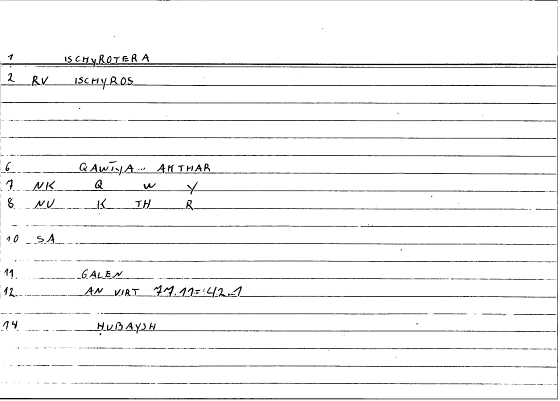 1 ISCHYROTERA
2 RV ISCHYROS
6 QAWĪYA... AKTHAR
7 NK Q W Y
8 NU K TH R
10 SA
11 GALEN
12 AN VIRT 77.11=42.1
14 ḤUBAYSH